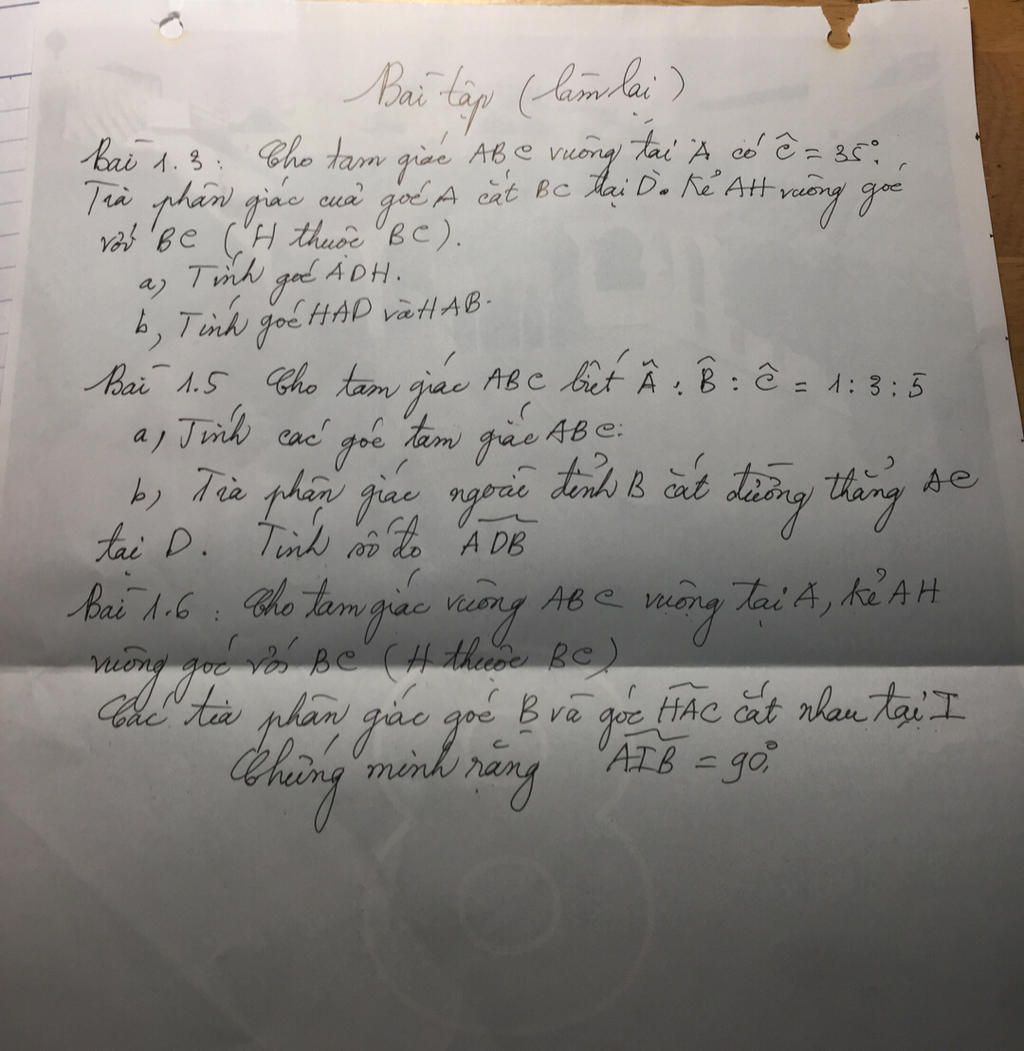 Bài tập (làm lại)
Bài 1.3 : Cho tam giác ABC vuông tại A có Ĉ = 35°.
Tia phân giác của góc A cắt BC tại D. Kẻ AH vuông góc
với BC (H thuộc BC).
a, Tính góc ADH.
b, Tính góc HAD và HAB.
Bài 1.5 Cho tam giác ABC biết Â : B̂ : Ĉ = 1 : 3 : 5
a, Tính các góc tam giác ABC.
b, Tia phân giác ngoài đỉnh B cắt đường thẳng AC
tại D. Tính số đo ADB
Bài 1.6 : Cho tam giác vuông ABC vuông tại A, kẻ AH
vuông góc với BC (H thuộc BC)
Các tia phân giác góc B và góc HAC cắt nhau tại I
Chứng minh rằng AIB = 90°.